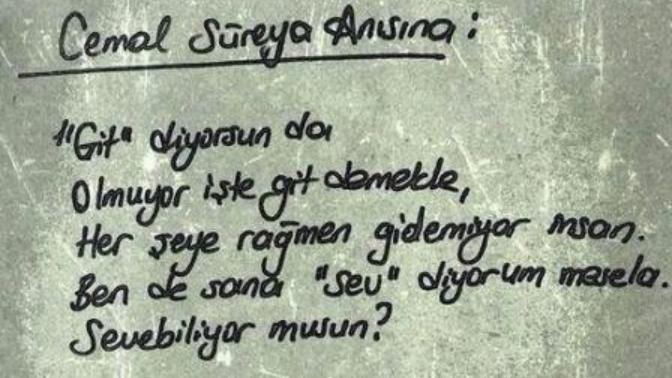 Cemal Süreya Anısına:
"Git" diyorsun da
Olmuyor işte git demekle,
Her şeye rağmen gidemiyor insan.
Ben de sana "sev" diyorum mesela.
Sevebiliyor musun?